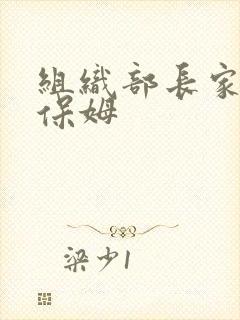 組織部長家
保姆
梁少1